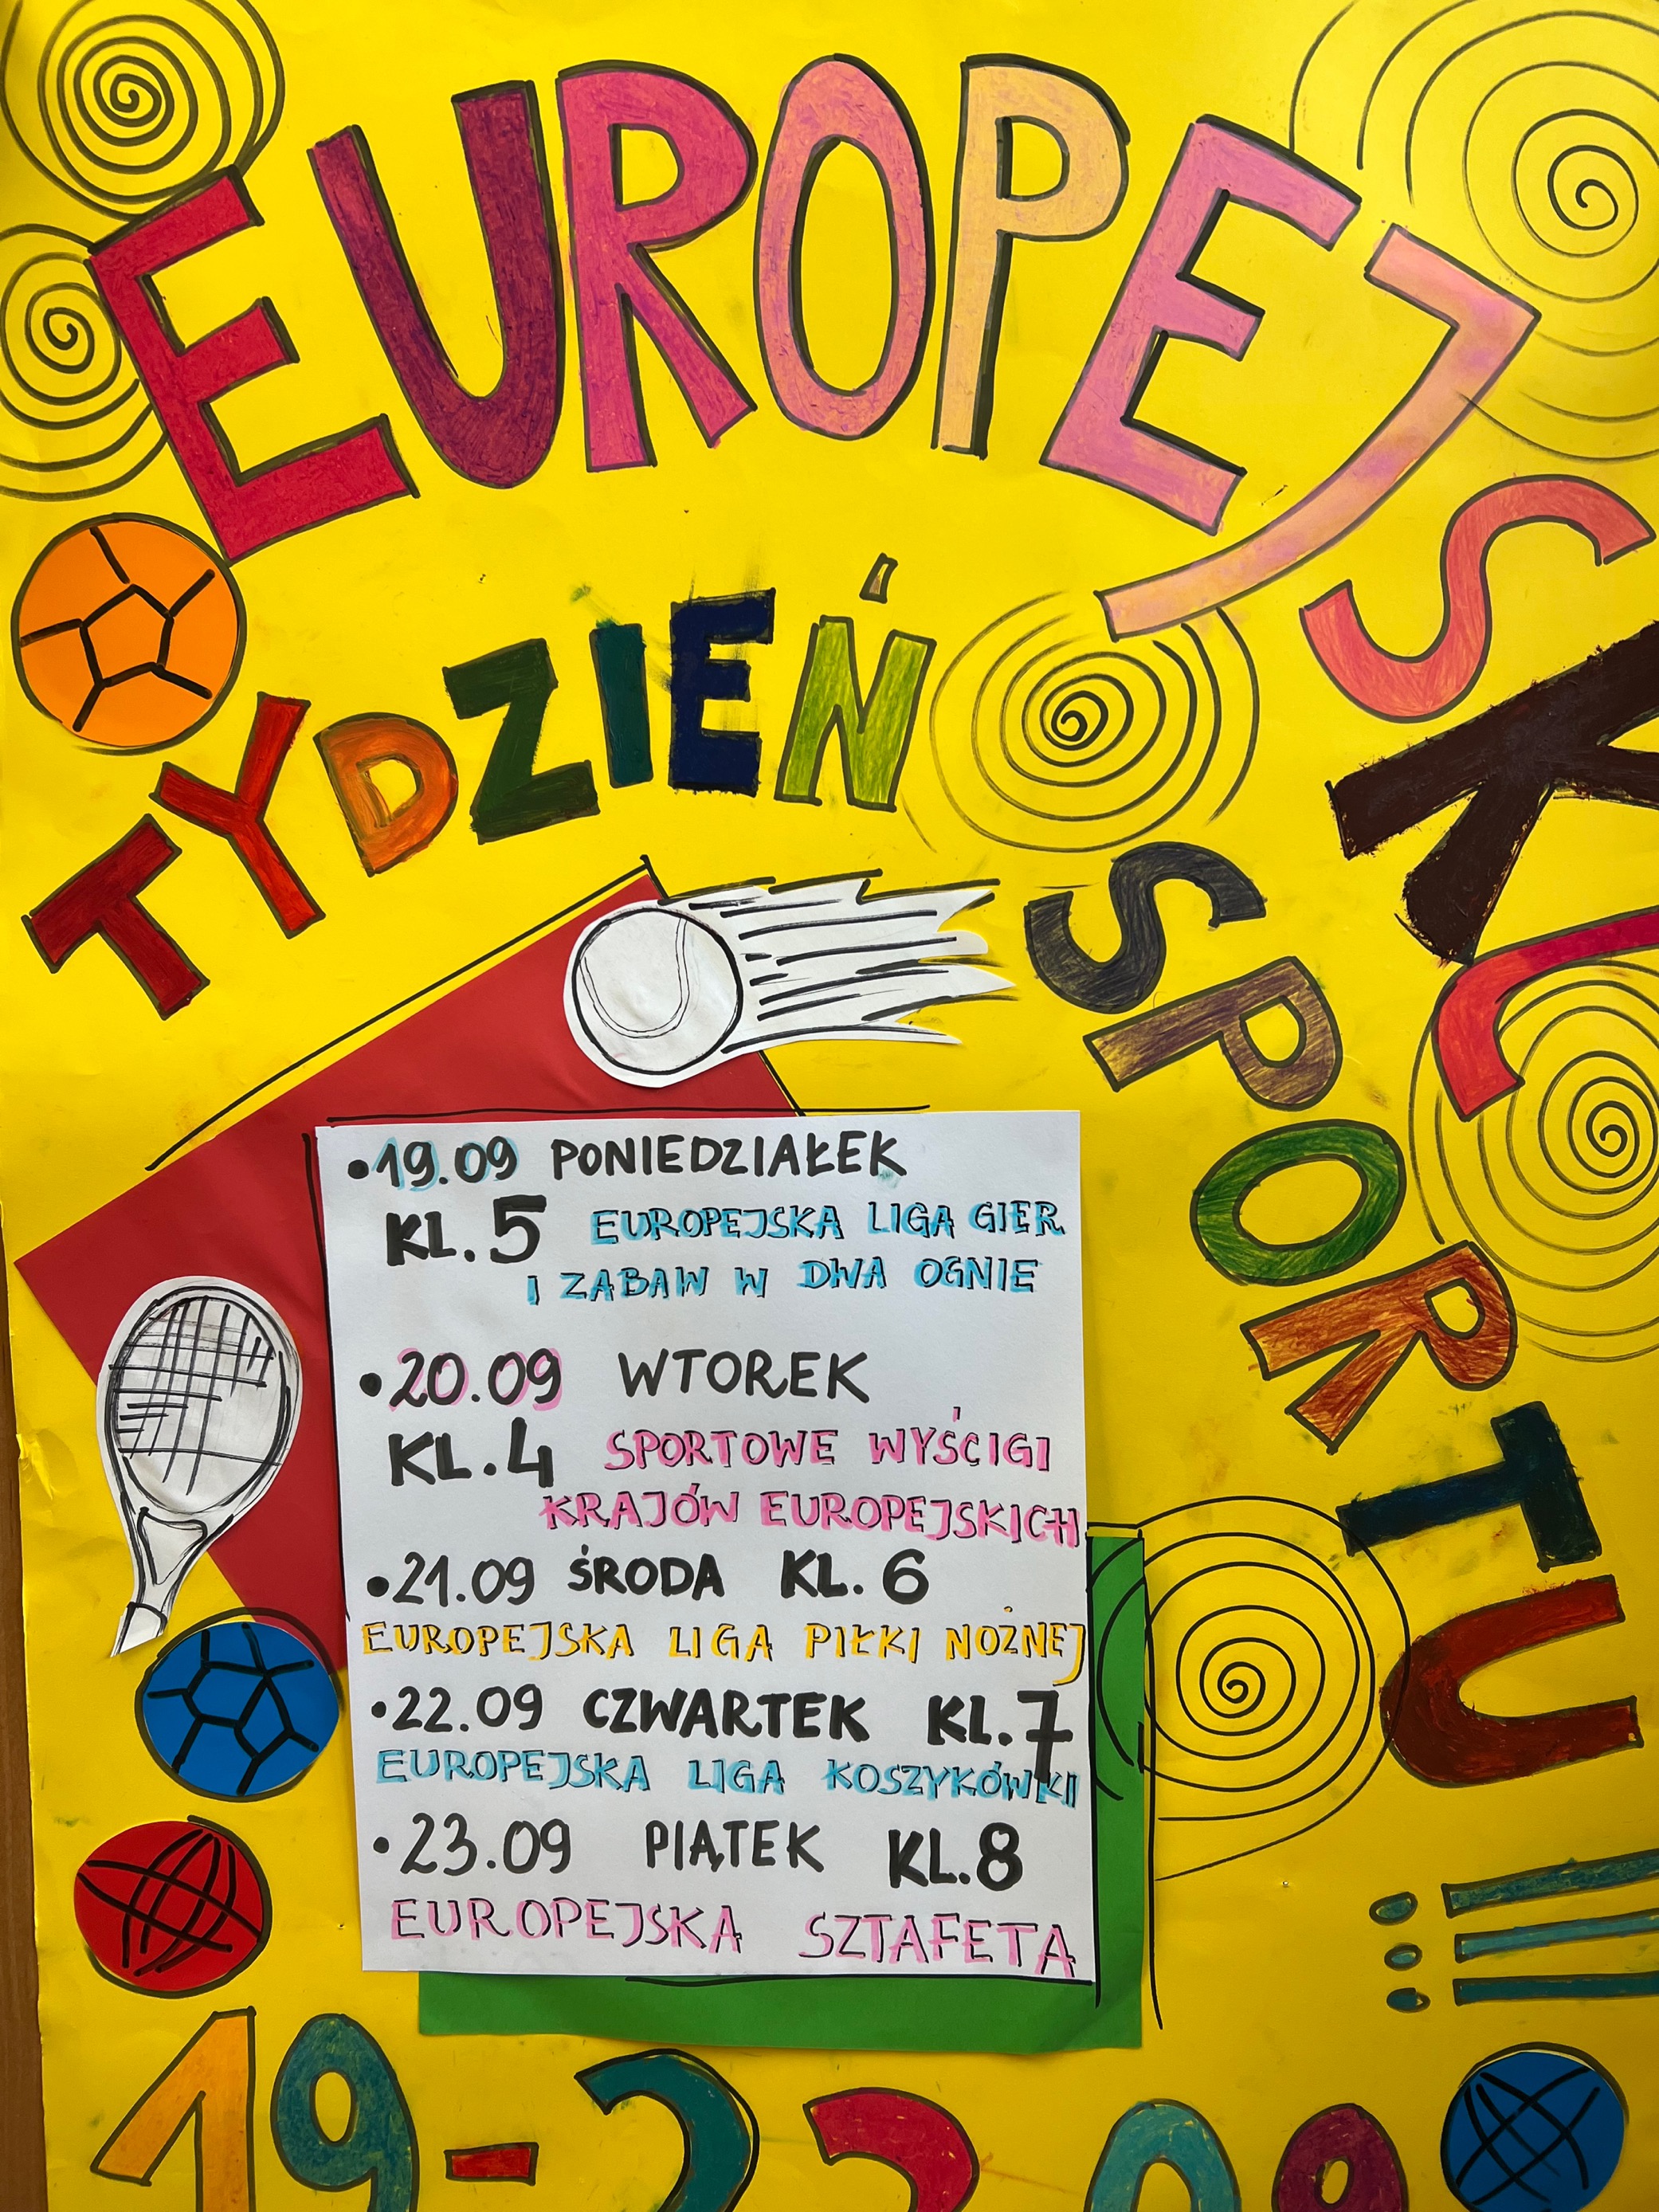 EUROPEJSKI
TYDZIEŃ
SPORTU
!!!
•19.09 PONIEDZIAŁEK
KL.5 EUROPEJSKA LIGA GIER
I ZABAW W DWA OGNIE
•20.09 WTOREK
KL.4 SPORTOWE WYŚCIGI
KRAJÓW EUROPEJSKICH
•21.09 ŚRODA KL.6
EUROPEJSKA LIGA PIŁKI NOŻNEJ
•22.09 CZWARTEK KL.7
EUROPEJSKA LIGA KOSZYKÓWKI
•23.09 PIĄTEK KL.8
EUROPEJSKA SZTAFETA
19-23.09